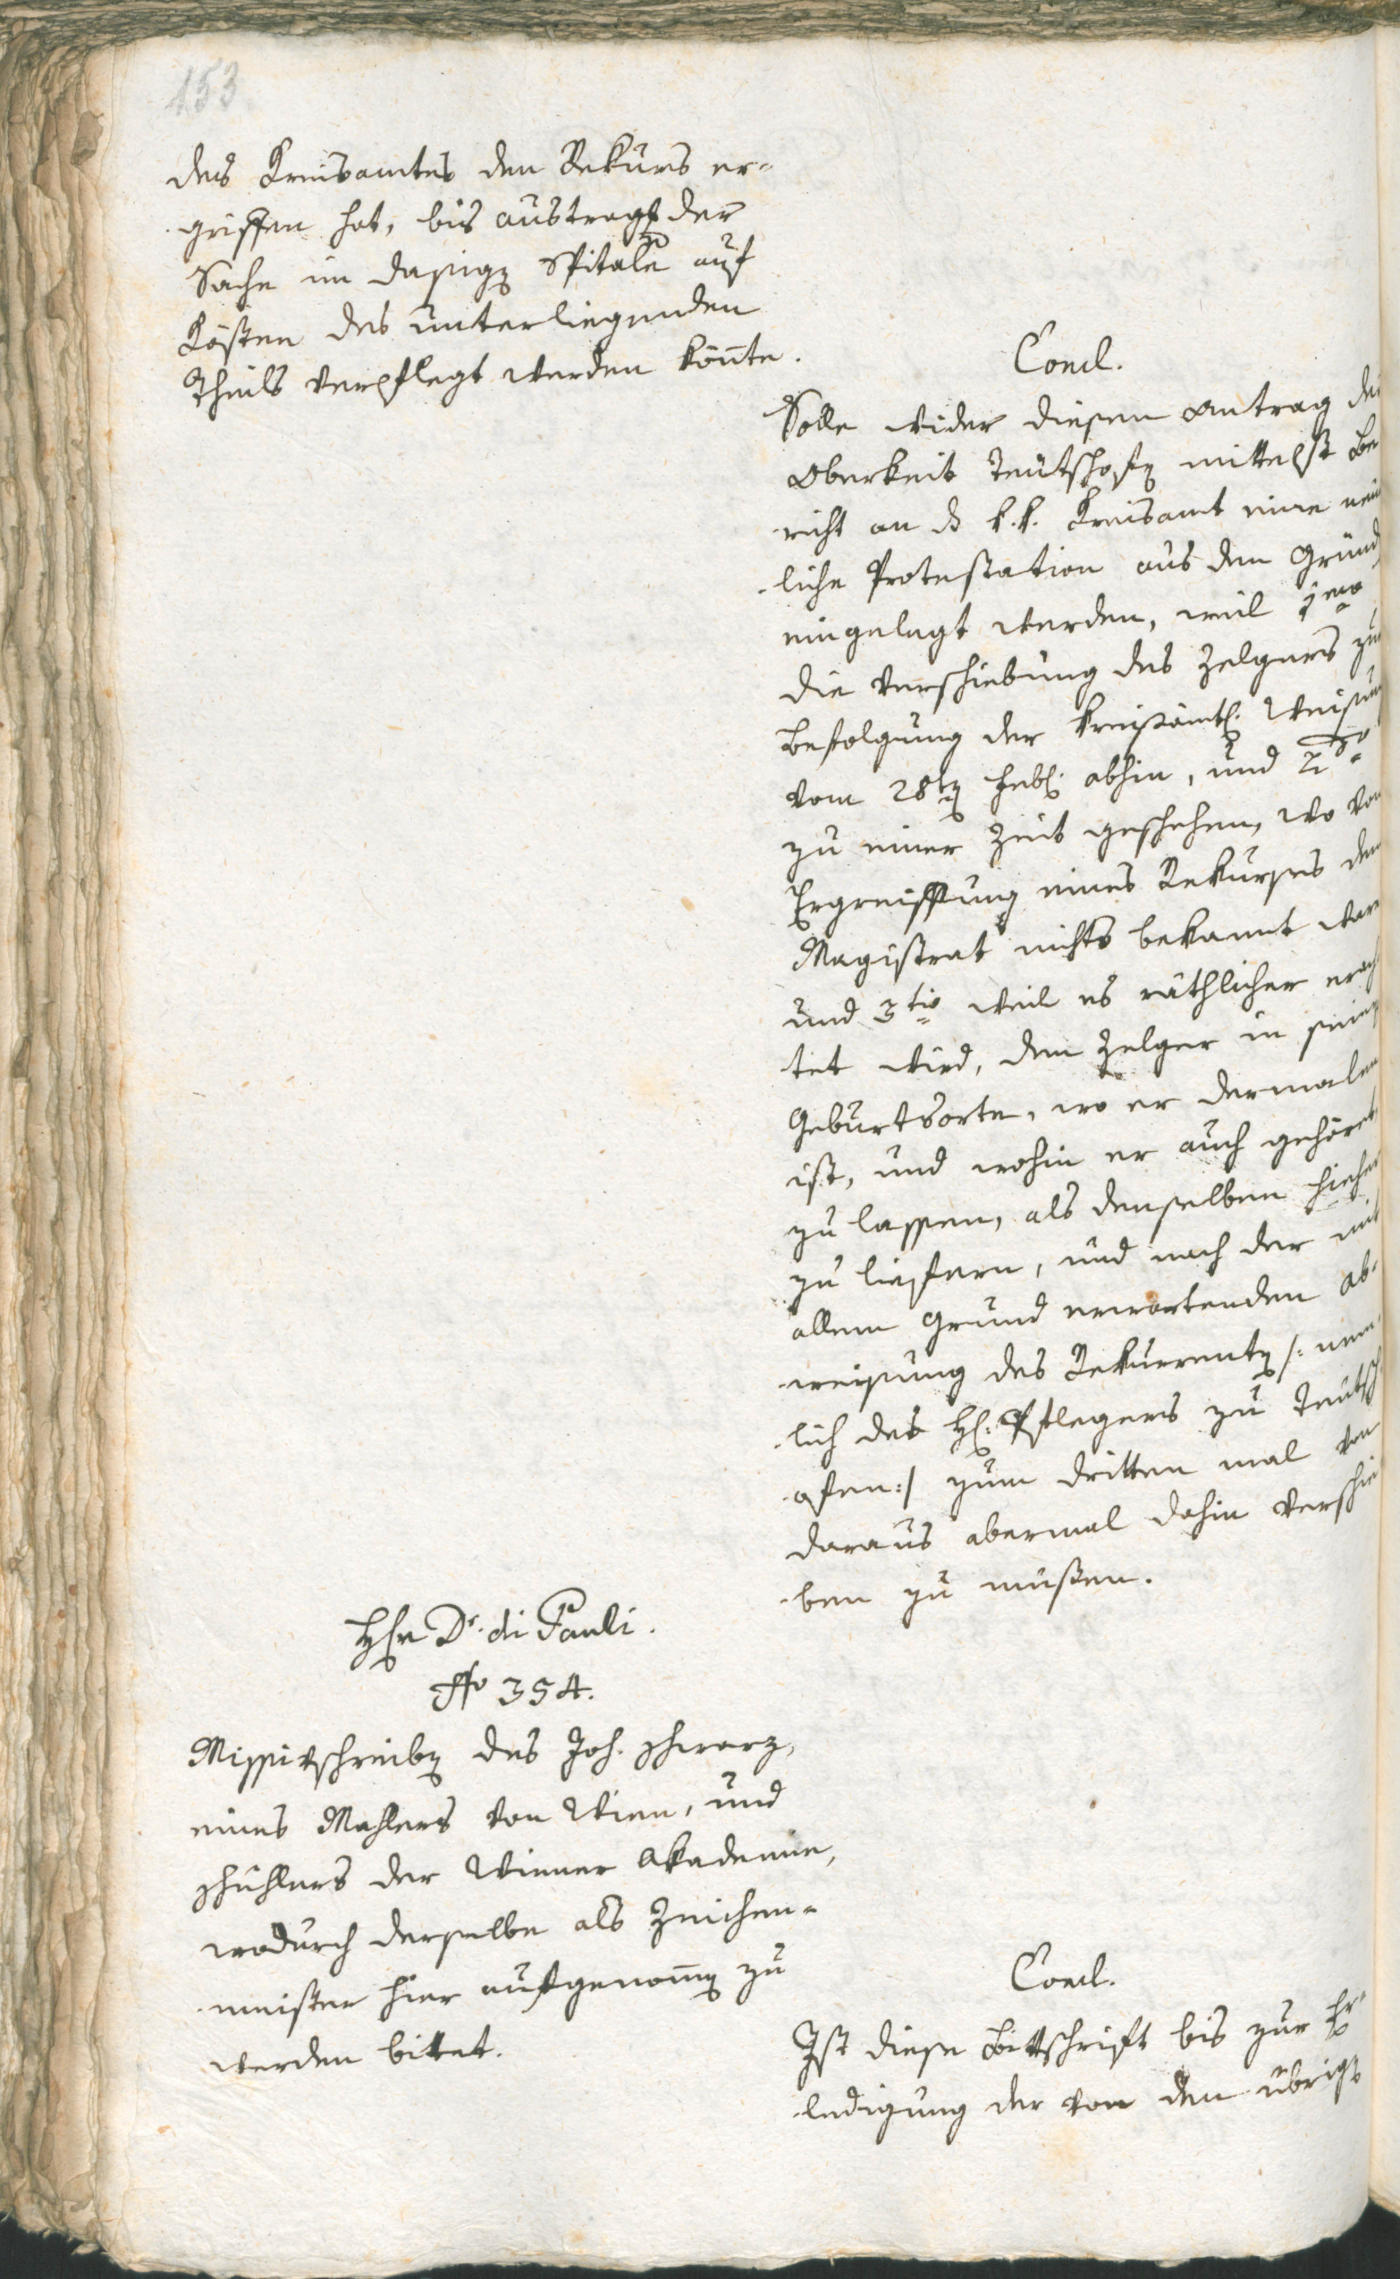 153
des Kreisamtes den Rekurs er-
griffen hat, bis austrags der
Sache im dasigen Spitale auf
Kösten des unterliegenden
Theils verpflegt werden könnte.
Concl.
Solle wider diesen Antrag der
Oberkeit Teutschofen mittelst Be
richt an das k.k. Kreisamt eine
liche Protestation aus dem Grund
eingelegt werden, weil 1mo
die Verschiebung des Zelgers zur
Befolgung der kreisämtl. Weisung
vom 28ten Feb. abhin, und 2do
zu einer Zeit geschehen, wo von
Ergreiffung eines Rekurses dem
Magistrat nichts bekannt ware
und 3tio weil es räthlicher erach
tet wird, den Zelger in seinem
Geburtsorte, wo er dermalen
ist, und wohin er auch gehöret
zu lassen, als denselben hieher
zu liefern, und nach der mit
allem Grund erwartenden Ab-
weisung des Rekurrenten /: nem
lich des H. Pflegers zu Teutsch
ofen :/ zum dritten mal von
daraus abermal dahin verschie
ben zu müßen.
Hrn Dr. di Pauli.
No 354.
Missivschreiben des Joh. Schwarz,
eines Mahlers von Wien, und
Schühlers der Wiener Akademie,
wodurch derselbe als Zeichen-
meister hier aufgenommen zu
werden bittet.
Concl.
Ist diese Bittschrift bis zur Er-
ledigung der von den übrigen